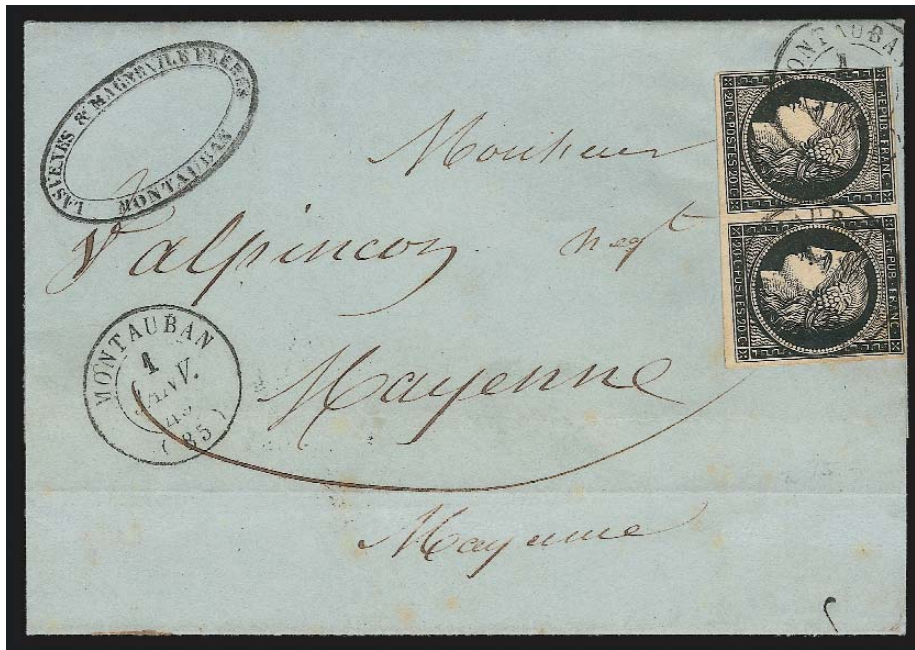 LASVENES & MAGNEVILE FRERES
MONTAUBAN
MONTAUBAN
1
REPUB. FRANC.
20 C. POSTES 20 C
REPUB. FRANC.
20 C. POSTES 20 C
Monsieur
Valpinçon negt
Mayenne
MONTAUBAN
1
JANV.
49
(85)
Mayenne